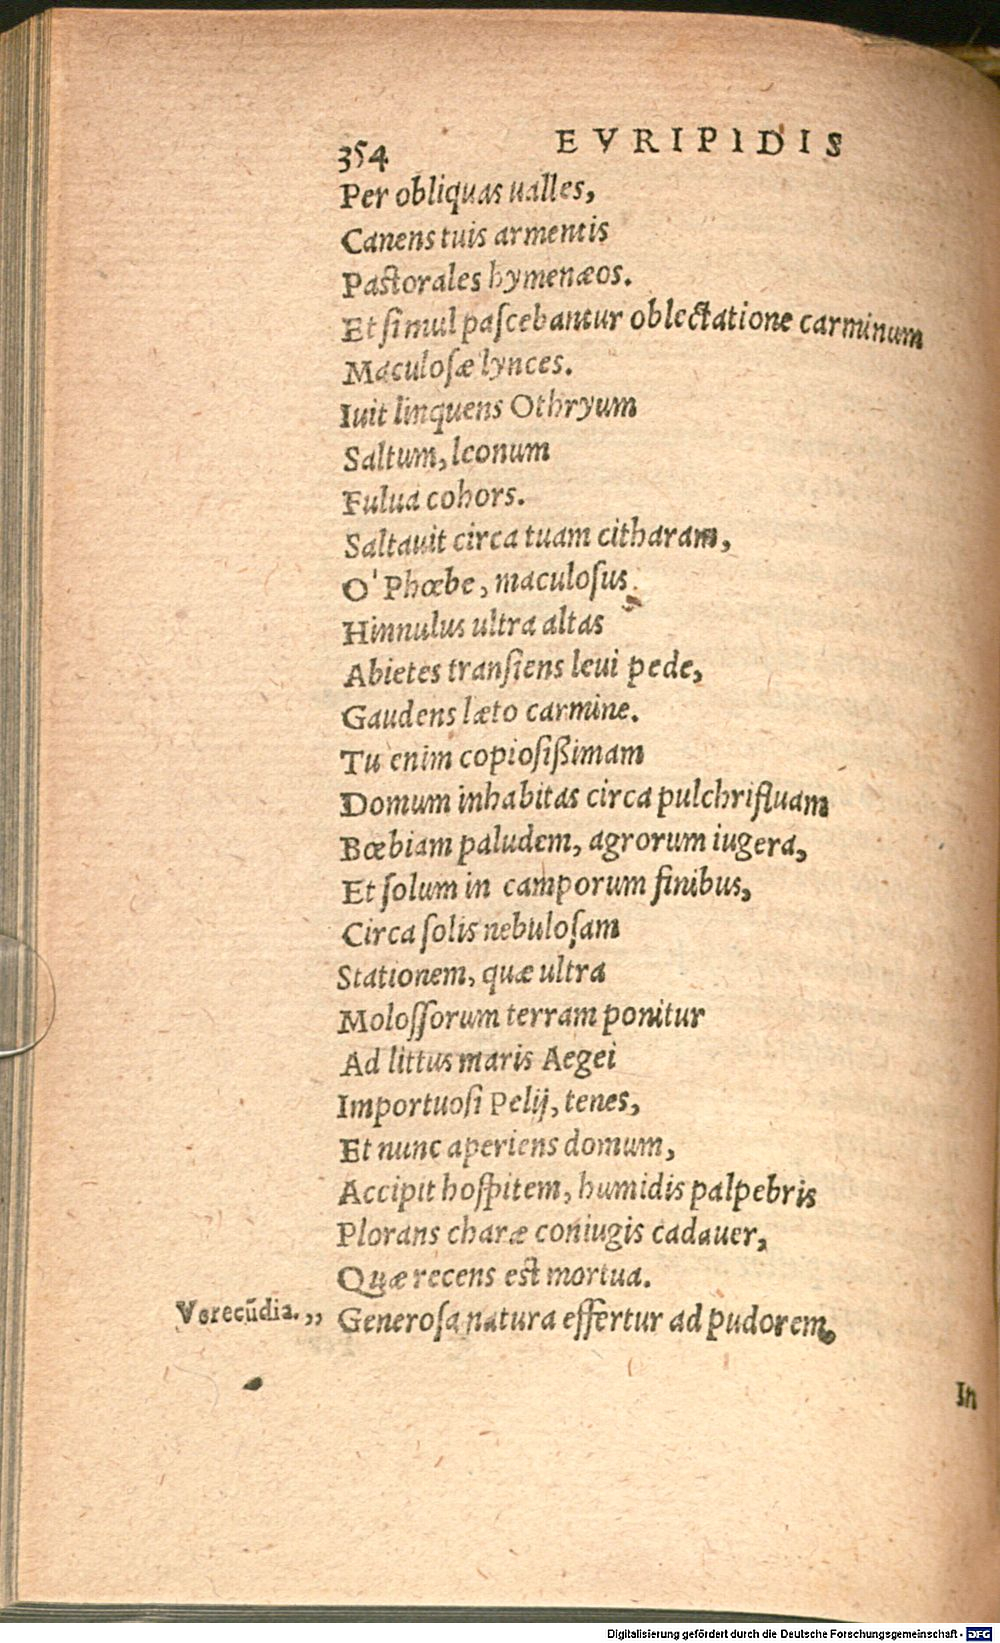 354 EVRIPIDIS
Per obliquas ualles,
Canens tuis armentis
Pastorales hymenæos.
Et simul pascebantur oblectatione carminum
Maculosæ lynces.
Iuit linquens Othryum
Saltum, leonum
Fulua cohors.
Saltauit circa tuam citharam,
O' Phœbe, maculosus
Hinnulus ultra altas
Abietes transiens leui pede,
Gaudens læto carmine.
Tu enim copiosißimam
Domum inhabitas circa pulchrifluam
Bœbiam paludem, agrorum iugera,
Et solum in camporum finibus,
Circa solis nebulosam
Stationem, quæ ultra
Molossorum terram ponitur
Ad littus maris Aegei
Importuosi Pelij, tenes,
Et nunc aperiens domum,
Accipit hospitem, humidis palpebris
Plorans charæ coniugis cadauer,
Quæ recens est mortua.
Verecūdia. „ Generosa natura effertur ad pudorem,
In
Digitalisierung gefördert durch die Deutsche Forschungsgemeinschaft - DFG